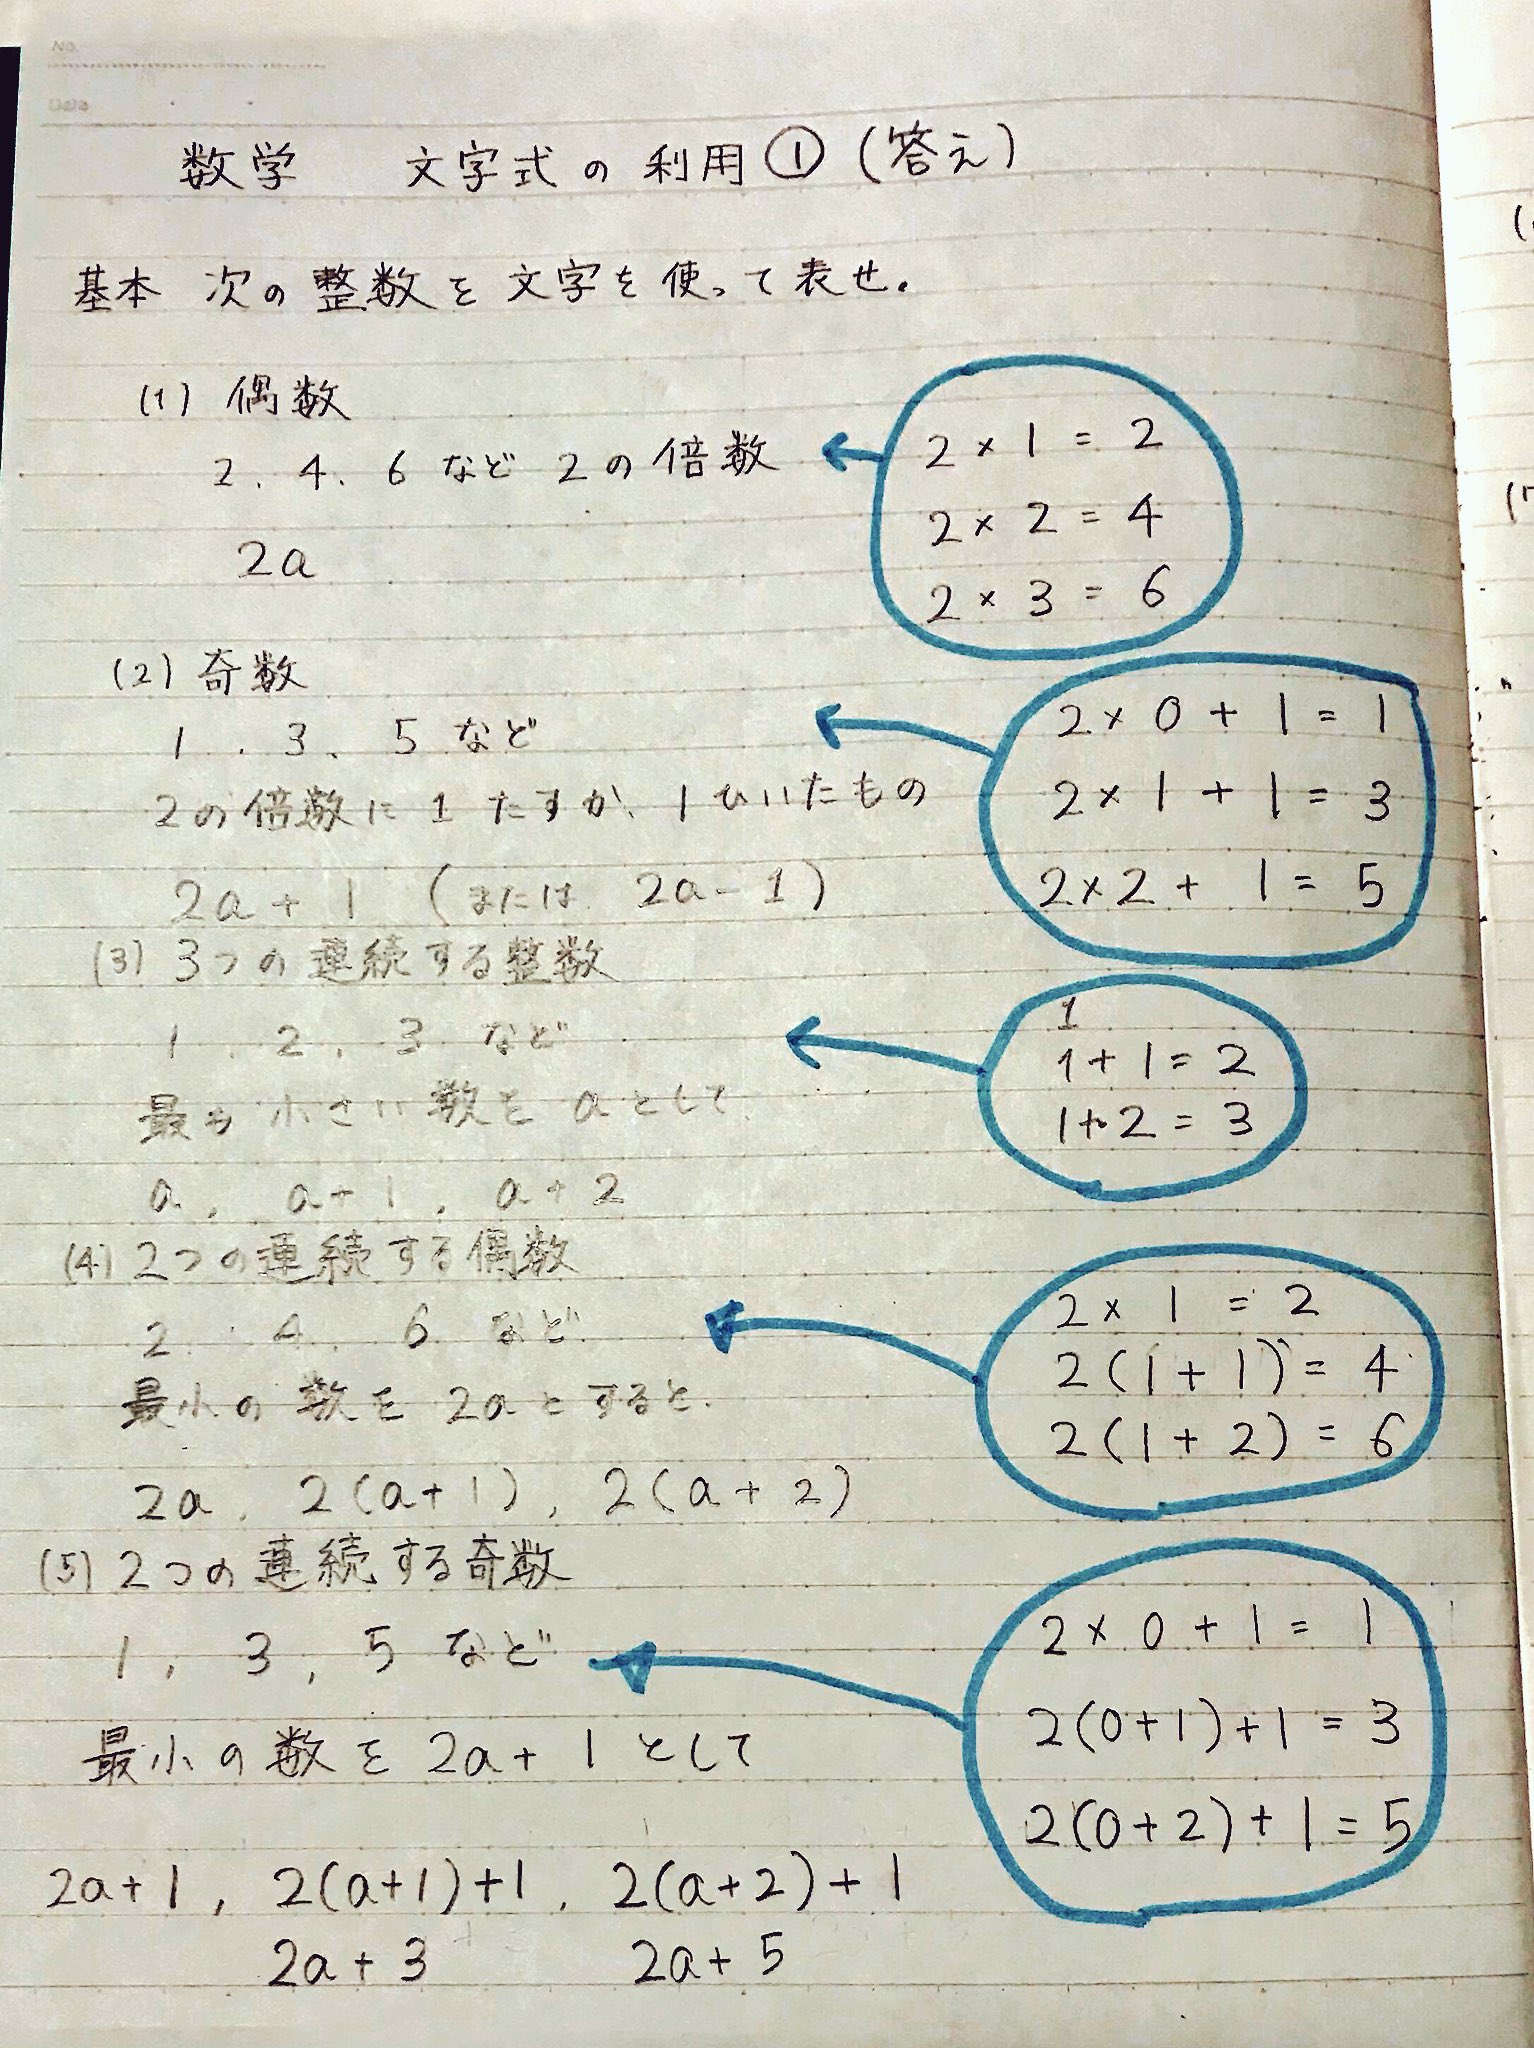 No.
Date
数学 文字式の利用① (答え)
基本 次の整数を文字を使って表せ。
(1) 偶数
2、4、6など2の倍数
2a
2 × 1 = 2
2 × 2 = 4
2 × 3 = 6
(2) 奇数
1、3、5など
2の倍数に1たすか、1ひいたもの
2a + 1 (または 2a - 1)
2 × 0 + 1 = 1
2 × 1 + 1 = 3
2 × 2 + 1 = 5
(3) 3つの連続する整数
1、2、3など
最も小さい数をaとして
a, a+1, a+2
1
1 + 1 = 2
1 + 2 = 3
(4) 2つの連続する偶数
2、4、6など
最小の数を2aとすると、
2a, 2(a+1), 2(a+2)
2 × 1 = 2
2(1 + 1) = 4
2(1 + 2) = 6
(5) 2つの連続する奇数
1, 3, 5など
最小の数を2a+1として
2a+1, 2(a+1)+1, 2(a+2)+1
2a+3 2a+5
2 × 0 + 1 = 1
2(0+1)+1 = 3
2(0+2)+1 = 5